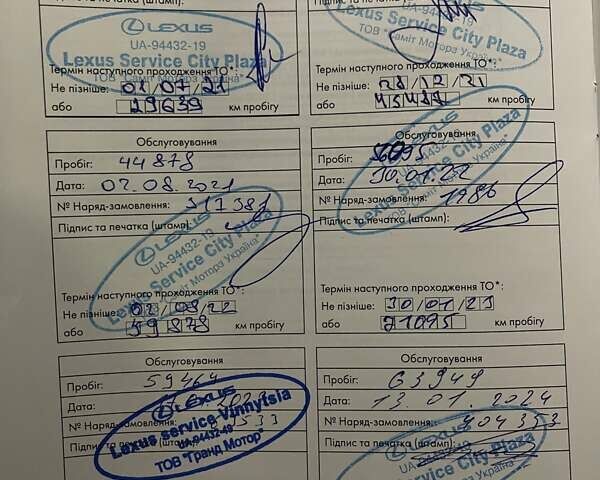 LEXUS
UA-94432-19
Lexus Service City Plaza
ТОВ "Саміт Моторз Україна"
Термін наступного проходження ТО*:
Не пізніше: 01/07/21
або 29639 км пробігу
UA-94432-19
Lexus Service City Plaza
ТОВ "Саміт Моторз Україна"
Термін наступного проходження ТО*:
Не пізніше: 28/12/21
або км пробігу
Обслуговування
Пробіг: 44878
Дата: 02.08.2021
№ Наряд-замовлення: 317381
Підпис та печатка (штамп):
LEXUS
UA-94432-19
Lexus Service City Plaza
ТОВ "Саміт Моторз Україна"
Термін наступного проходження ТО*:
Не пізніше: 02/08/22
або 59878 км пробігу
Обслуговування
Пробіг:
Дата: 30.01.22
№ Наряд-замовлення: 1986
Підпис та печатка (штамп):
LEXUS
UA-94432-19
Lexus Service City Plaza
ТОВ "Саміт Моторз Україна"
Термін наступного проходження ТО*:
Не пізніше: 30/01/23
або 71095 км пробігу
Обслуговування
Пробіг: 59464
Дата:
№ Наряд-замовлення:
Підпис та печатка
LEXUS
Lexus service Vinnytsia
UA-94432-49
ТОВ "Гранд Мотор"
Обслуговування
Пробіг: 63949
Дата: 13.01.2024
№ Наряд-замовлення: 404353
Підпис та печатка (штамп):
LEXUS
UA-94432-19
Lexus Service City Plaza